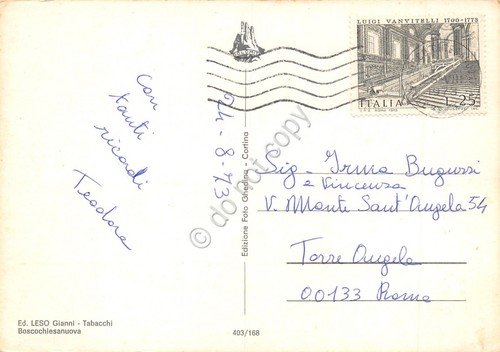 LUIGI VANVITELLI 1700-1773
ITALIA L. 25
con
tanti
ricordi
Teodora
24-8-73
Edizione Foto Ghedina - Cortina
do not copy
Sig. Irma Bugussi
e Vincenza
V. Monte Sant'Angela 54
Torre Angela
00133 Roma
Ed. LESO Gianni - Tabacchi
Boscochiesanuova
403/168